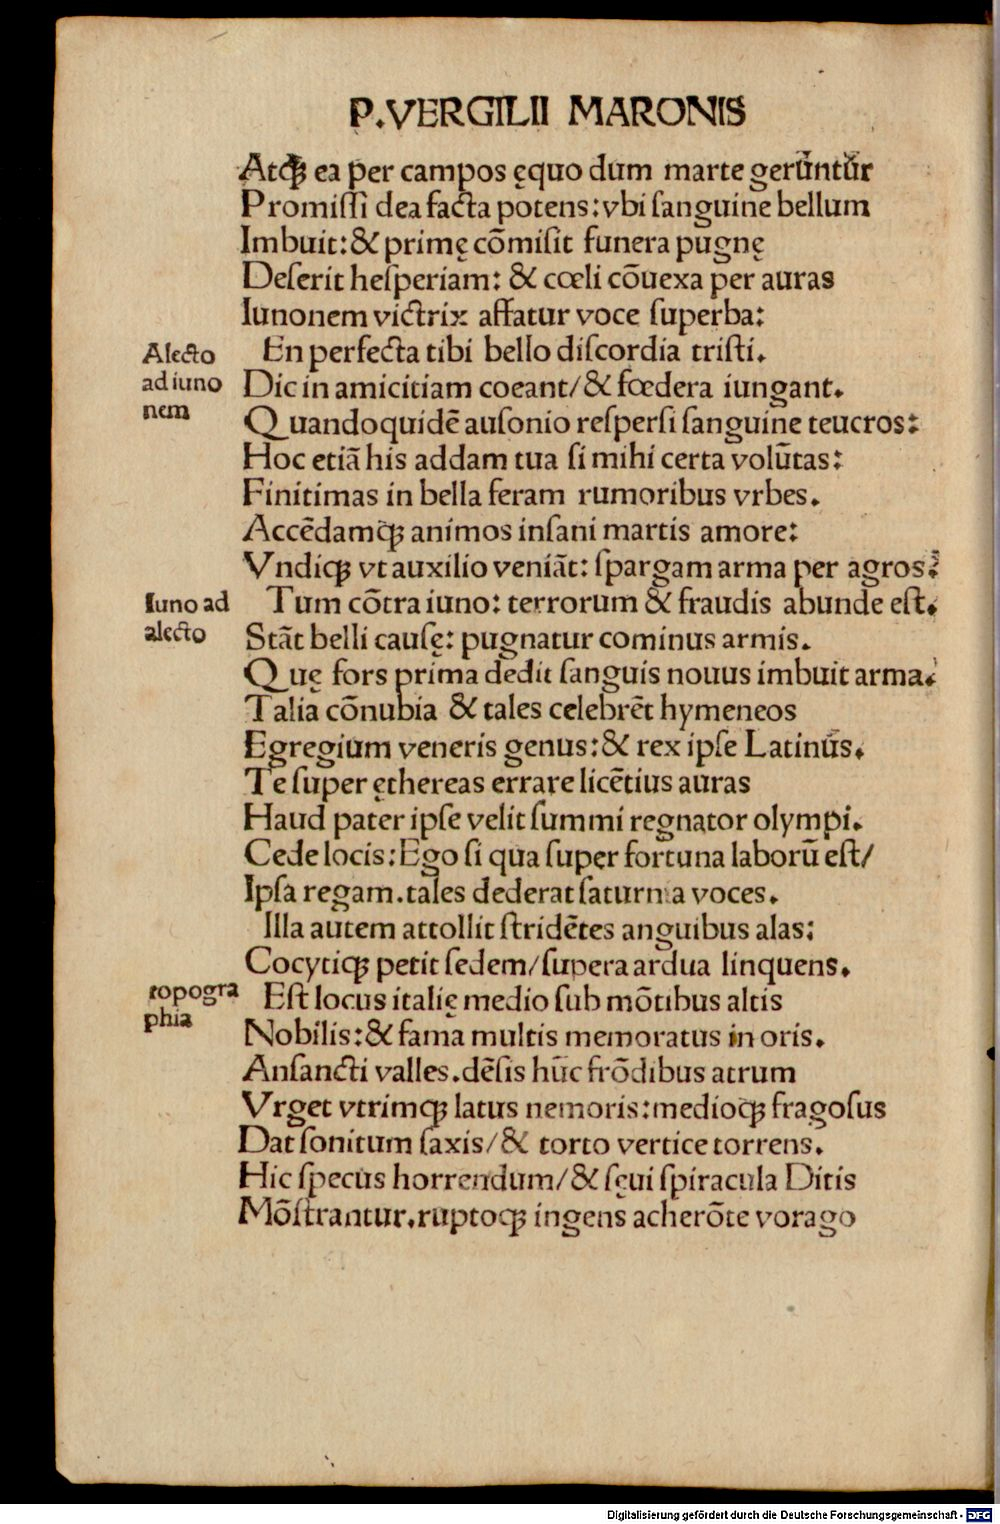 P.VERGILII MARONIS
Atqꝫ ea per campos ęquo dum marte gerūntūr
Promiſſi dea facta potens: vbi ſanguine bellum
Imbuit: & primę cōmiſit funera pugnę
Deſerit heſperiam: & cœli cōuexa per auras
Iunonem victrix affatur voce ſuperba:
Alecto ad iuno nem
En perfecta tibi bello diſcordia triſti.
Dic in amicitiam coeant/& fœdera iungant.
Quandoquidē auſonio reſperſi ſanguine teucros:
Hoc etiā his addam tua ſi mihi certa volūtas:
Finitimas in bella feram rumoribus vrbes.
Accēdamqꝫ animos inſani martis amore:
Vndiqꝫ vt auxilio veniāt: ſpargam arma per agros:
Iuno ad alecto
Tum cōtra iuno: terrorum & fraudis abunde eſt.
Stāt belli cauſę: pugnatur cominus armis.
Quę fors prima dedit ſanguis nouus imbuit arma.
Talia cōnubia & tales celebrēt hymeneos
Egregium veneris genus: & rex ipſe Latinūs.
Te ſuper ęthereas errare licētius auras
Haud pater ipſe velit ſummi regnator olympi.
Cede locis: Ego ſi qua ſuper fortuna laborū eſt/
Ipſa regam. tales dederat ſaturnia voces.
Illa autem attollit ſtridētes anguibus alas:
Cocytiqꝫ petit ſedem/ſupera ardua linquens.
topogra phia
Eſt locus italię medio ſub mōtibus altis
Nobilis: & fama multis memoratus in oris.
Anſancti valles. dēſis hūc frōdibus atrum
Vrget vtrimqꝫ latus nemoris: medioqꝫ fragoſus
Dat ſonitum ſaxis/& torto vertice torrens.
Hic ſpecus horrendum/& ſęui ſpiracula Ditis
Mōſtrantur. ruptoqꝫ ingens acherōte vorago
Digitalisierung gefördert durch die Deutsche Forschungsgemeinschaft - DFG